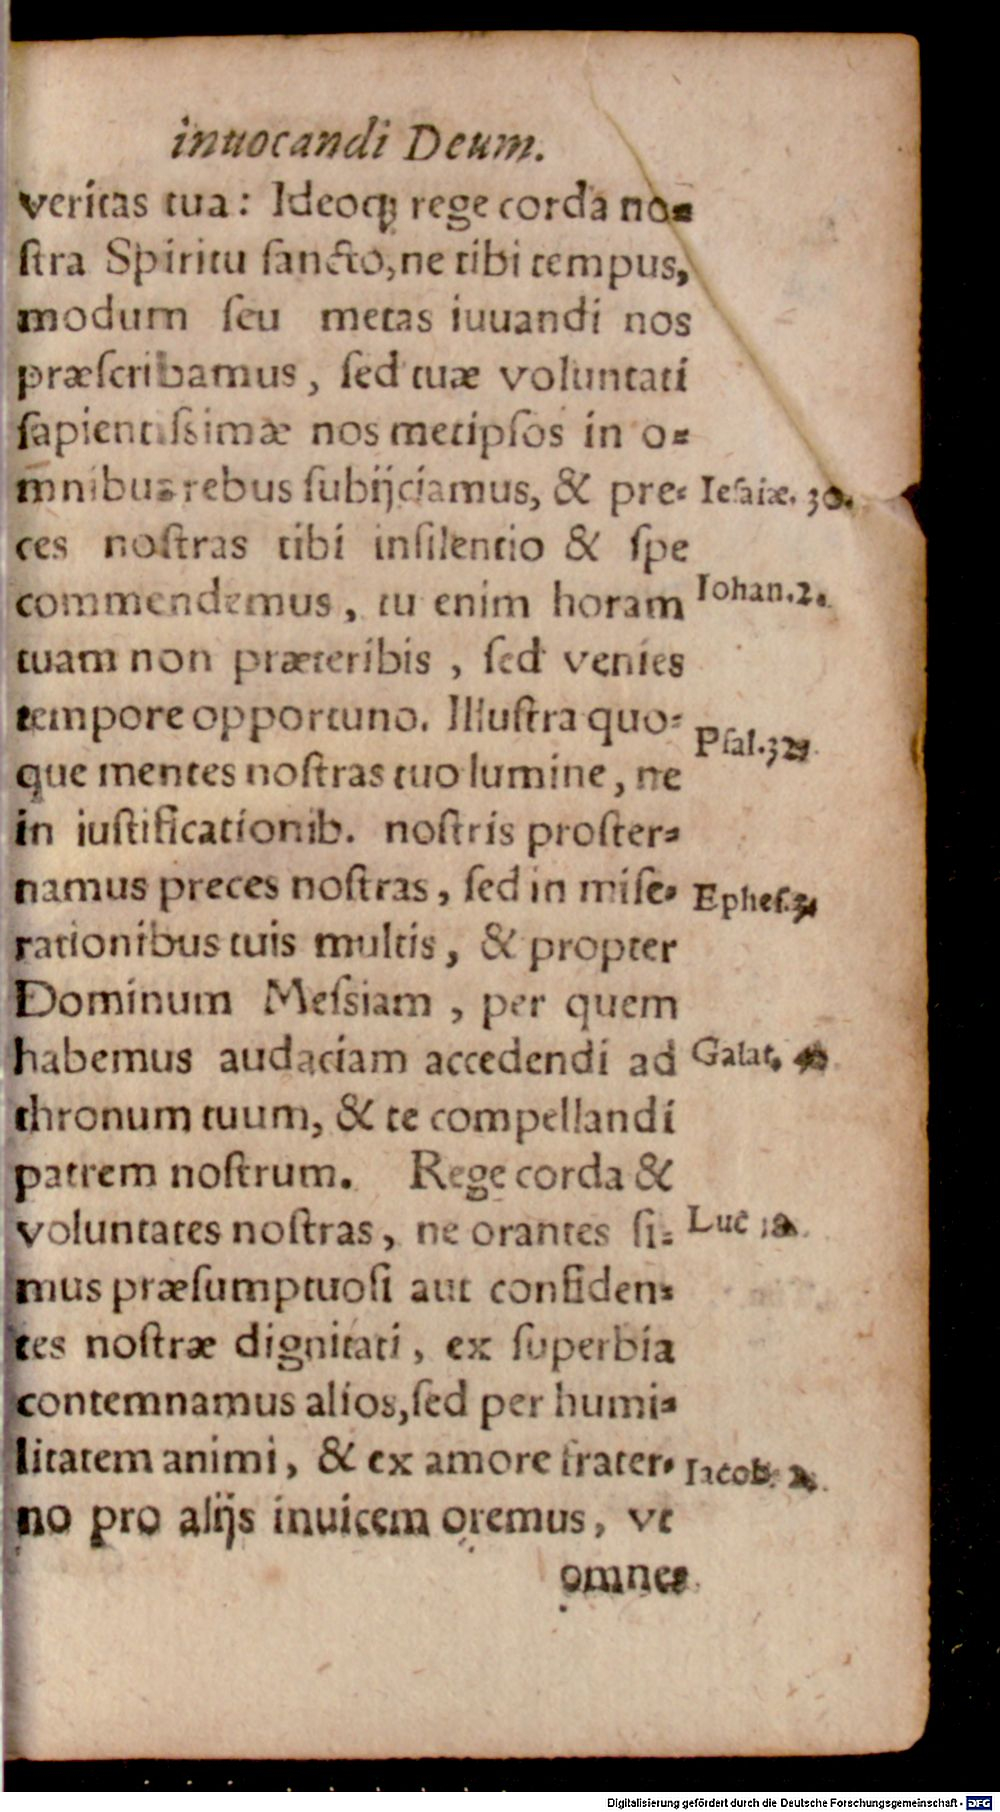 inuocandi Deum.
veritas tua: Ideoq́; rege corda no-
ſtra Spiritu ſancto, ne tibi tempus,
modum ſeu metas iuuandi nos
præſcribamus, ſed tuæ voluntati
ſapientiſsimæ nos metipſos in o-
mnibus rebus ſubijciamus, & pre-
Ieſaiæ. 30.
ces noſtras tibi inſilentio & ſpe
commendemus, tu enim horam
Iohan. 2.
tuam non præteribis, ſed venies
tempore opportuno. Illuſtra quo-
Pſal. 32.
que mentes noſtras tuo lumine, ne
in iuſtificationib. noſtris proſter-
namus preces noſtras, ſed in miſe-
Epheſ. 3.
rationibus tuis multis, & propter
Dominum Meſsiam, per quem
habemus audaciam accedendi ad
Galat.
thronum tuum, & te compellandi
patrem noſtrum. Rege corda &
voluntates noſtras, ne orantes ſi-
Luc 18.
mus præſumptuoſi aut confiden-
tes noſtræ dignitati, ex ſuperbia
contemnamus alios, ſed per humi-
litatem animi, & ex amore frater-
Iacob. 2.
no pro alijs inuicem oremus, vt
omnes
Digitalisierung gefördert durch die Deutsche Forschungsgemeinschaft - DFG